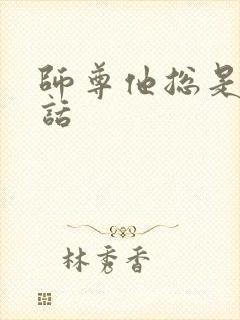 師尊他總是
話
林秀香